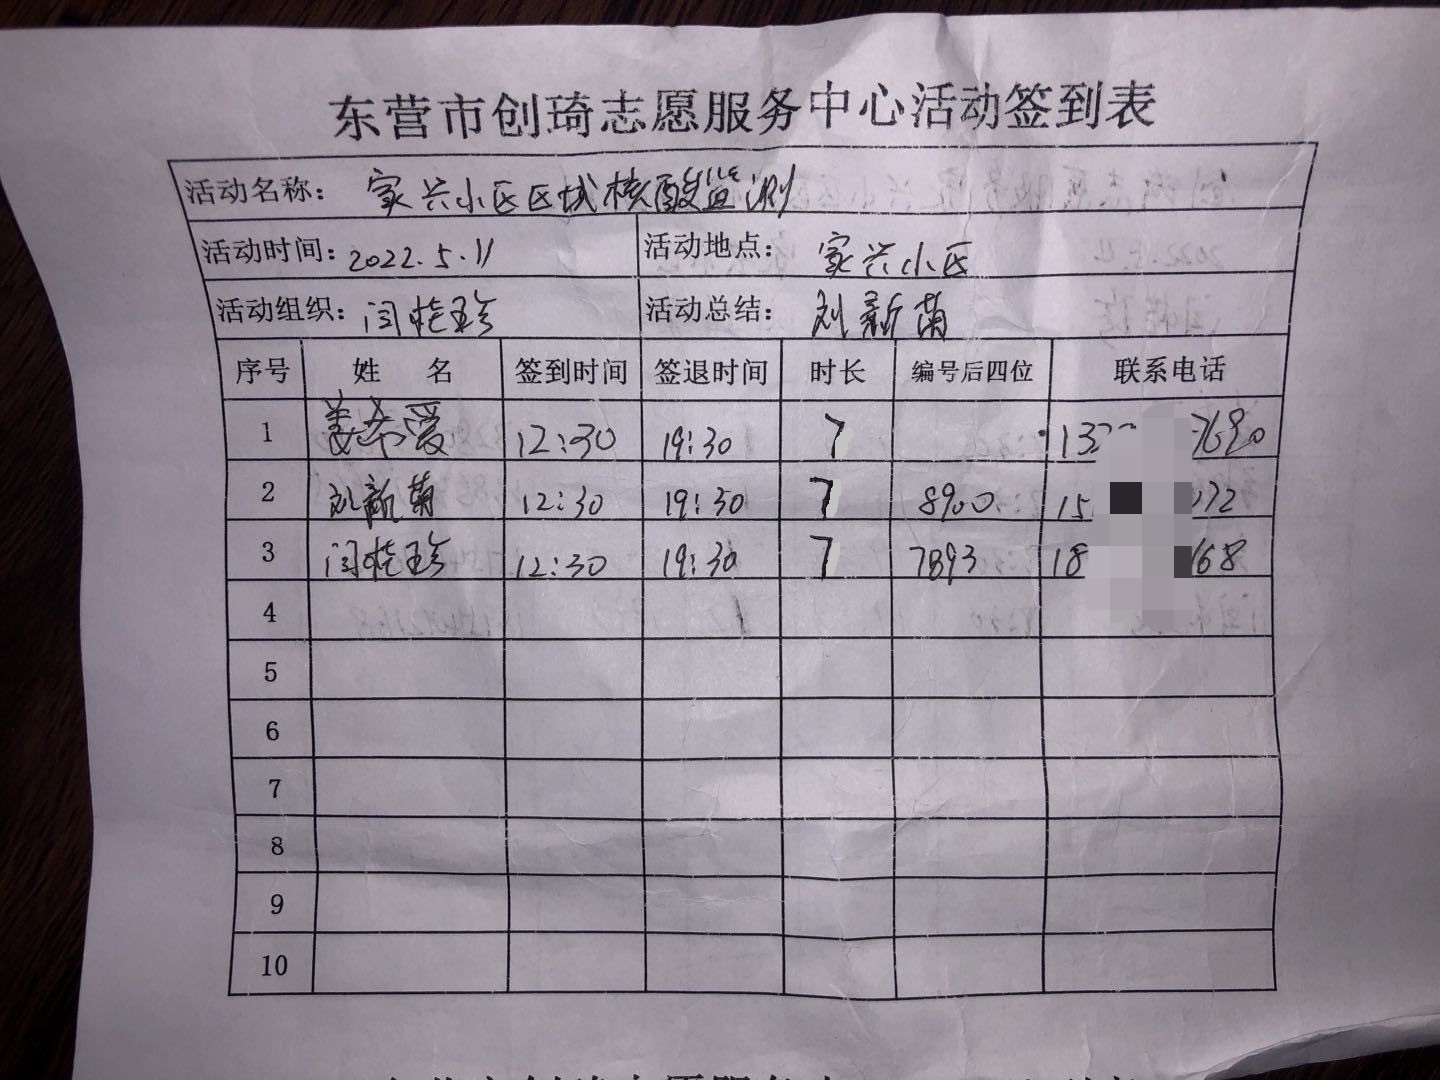 东营市创琦志愿服务中心活动签到表
活动名称： 家兴小区区域核酸监测
活动时间：2022.5.11 活动地点： 家兴小区
活动组织：闫桂珍 活动总结： 刘新菊
序号 姓 名 签到时间 签退时间 时长 编号后四位 联系电话
1 姜希爱 12:30 19:30 7 13 7690
2 刘新菊 12:30 19:30 7 8900 15 172
3 闫桂珍 12:30 19:30 7 7893 18 168
4
5
6
7
8
9
10